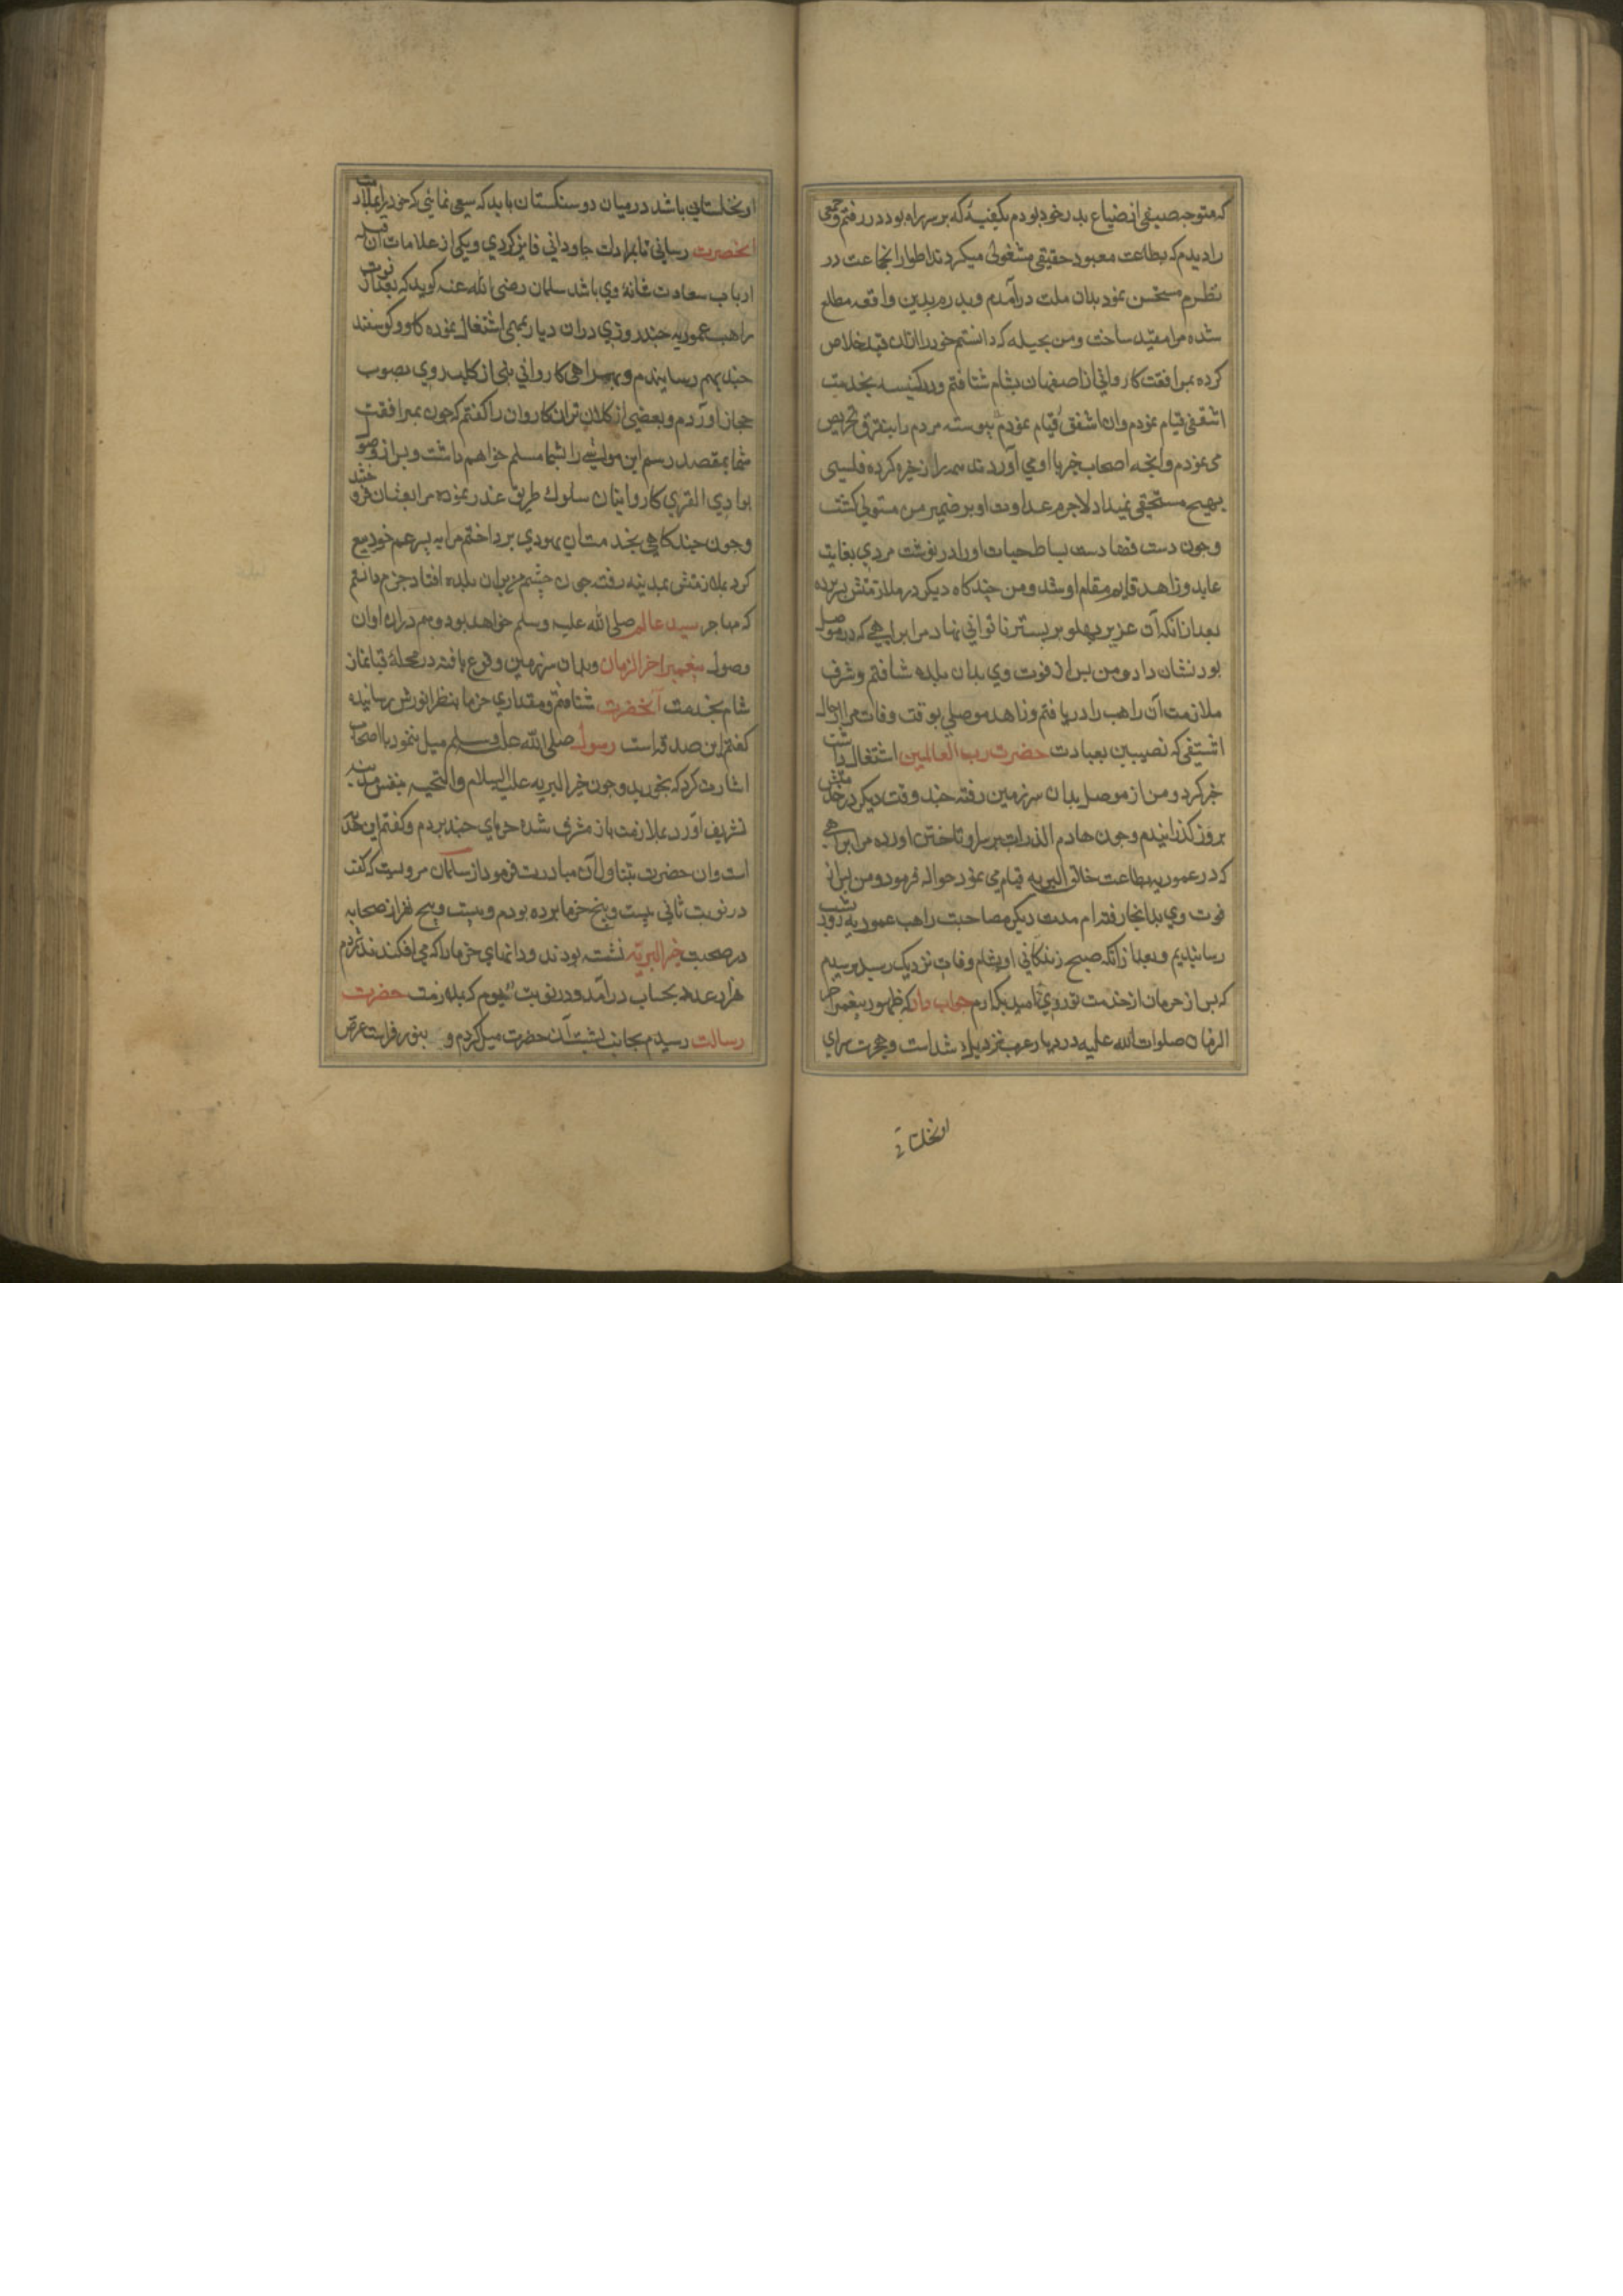 که متوجه صیفی از ضیاع بدر خود بودم بکنیسهٔ که بر سر راه بود در رفتم و جمعی
را دیدم که بطاعت معبود حقیقی مشغولی میکردند اطوار انجماعت در
نظرم مستحسن نمود بدان ملت درآمدم و بدرم بدین واقعه مطلع
شده مرا مقید ساخت و من بحیله که دانستم خود را از ان قید خلاص
کرده بمرافقت کاروانی از اصفهان بشام شتافتم و در کنیسه بخدمت
اشقفی قیام نمودم و ان اشقف قیام نمودم پیوسته مردم را بتفرق تحریص
می نمودم و انجه اصحاب خیر با او می آوردند همه را ذخیره کرده فلسی
بهیچ مستحقی نمیداد لاجرم عداوت او بر ضمیر من مستولی کشت
و جون دست قضا دست بساط حیات او را در نوشت مردی بغایت
عابد و زاهد قایم مقام او شد و من چند کاه دیکر در ملازمتش بسر برده
بعد از انکه آن عزیز پهلو بر بستر ناتوانی نهاد مرا براهبی که در موصل
بود نشان داد و من بس از فوت وی بدان بلده شتافتم و شرف
ملازمت آن راهب را دریافتم و زاهد موصلی بوقت وفات مرا از حال
اشقفی که نصیبین بعبادت حضرت رب العالمین اشتغال داشت
خبر کرد و من از موصل بدان سرزمین رفته چند وقت دیکر در خدمتش
بروز کذرانیدم و جون هادم اللذات بر سر او تاختن اورده مرا براهبی
که در عموریه بطاعت خالق البریه قیام می نمود حواله فرمود و من بس از
فوت وی بدانجا رفته ام مدت دیکر مصاحبت راهب عموریه روز بشب
رسانیدیم و بعد از آنکه صبح زندکانی او بشام وفات نزدیک رسید پرسیدم
که بس از حرمان از خدمت تو روی امید بکه ارم جواب داد که ظهور پیغمبر اخر
الزمان صلوات الله علیه در دیار عرب نزدیک شد است و هجرت سرای
انخلستانی
ان نخلستانی باشد در میان دو سنکستان باید که سعی نمائی که خود را بملازمت
انحضرت رسانی تا بمرادات جاودانی فایز کردی و یکی از علامات ان قبله
ارباب سعادت خاتم وی باشد سلمان رضی الله عنه کوید که بعد از فوت
راهب عموریه چند روزی دران دیار بمهمی اشتغال نموده کاو و کوسفند
چند بهم رسانیدم و بهمراهی کاروانی بنی از کلب روی بصوب
حجاز اوردم و بعضی از کلان تران کاروان را کفتم که جون بمرافقت
شما بمقصد رسم این مواشی را بشما مسلم خواهم داشت و بس از وصول
بوادی القری کاروانیان سلوک طریق غدر نموده مرا بعثمان فروختند
و جون چند کاهی بخدمت ان یهودی برداختم مرا به پسر عم خود بیع
کرد بملازمتش بمدینه رفته جون چشم من بران بلده افتاد جزم دانستم
که مهاجر سید عالم صلی الله علیه و سلم خواهد بود و هم دران اوان
وصول پیغمبر اخر الزمان و بدان سرزمین وقوع یافته در محلهٔ قبا نماز
شام بخدمت آنحضرت شتافتم و مقداری خرما بنظر انورش رسانیده
کفتم این صدقه است رسول صلی الله علیه و سلم میل ننمود با اصحاب
اشارت کرد که بخورید و جون خیر البریه علیه السلام و التحیه بنفس مدینه
تشریف آورد بملازمت باز مشرف شده خرمای چند بردم و کفتم این هدیه
است و ان حضرت بتناول آن مبادرت فرمود از سلمان مرویست که کفت
در نوبت ثانی بیست و پنج خرما برده بودم و بیست و پنج نفر از صحابه
در صحبت خیر البریه نشسته بودند و دانهای خرما را که می افکندند شمردم
هزار عدد بحساب درآمد و در نوبت سیوم که بملازمت حضرت
رسالت رسیدم بجانب پشت آن حضرت میل کردم و بنور فراست غرض